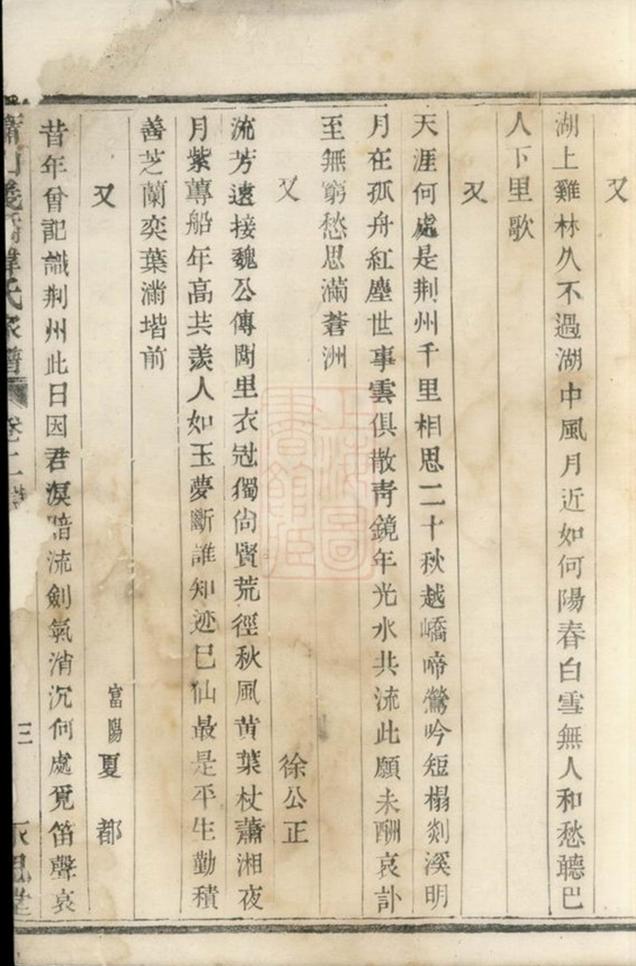 又
湖上雞林久不過湖中風月近如何陽春白雪無人和愁聽巴
人下里歌
又
天涯何處是荆州千里相思二十秋越嶠啼鶯吟短榻剡溪明
月在孤舟紅塵世事雲俱散靑鏡年光水共流此願未酬哀訃
至無窮愁思滿蒼洲
又 徐公正
流芳遠接魏公傳閭里衣冠獨尙賢荒徑秋風黄葉杖蕭湘夜
月紫蓴船年高共羡人如玉夢斷誰知迹巳仙最是平生勤積
善芝蘭奕葉滿堦前
又 富陽夏 都
昔年曾記識荆州此日因君淚暗流劍氣消沉何處覓笛聲哀
蕭山 氏家譜 卷二 三
上海圖書館藏